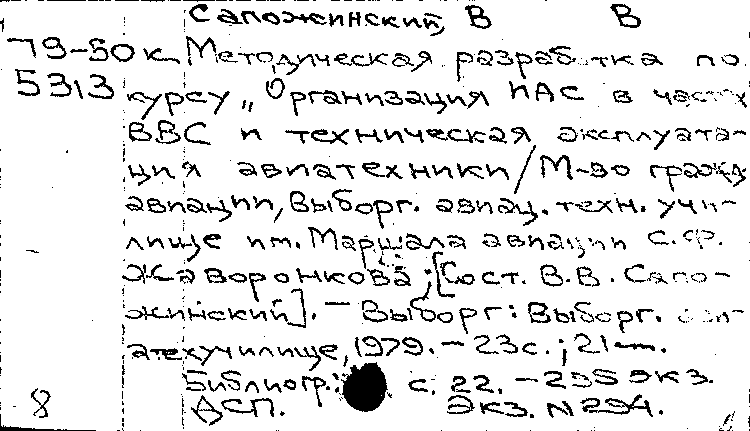 Сапожинский, В В
79-50к Методическая разработка по
5313 курсу „Организация ИАС в частях
ВВС и техническая эксплуата-
ция авиатехники/М-во гражд.
авиации, Выборг. авиац. техн. учи-
лище им. Маршала авиации С.Ф.
Жаворонкова; [Сост. В.В. Сапо-
жинский]. - Выборг: Выборг. ави-
атехучилище, 1979. - 23с.; 21
Библиогр.: с. 22. - 235 экз.
8 ДСП. Экз. N294.